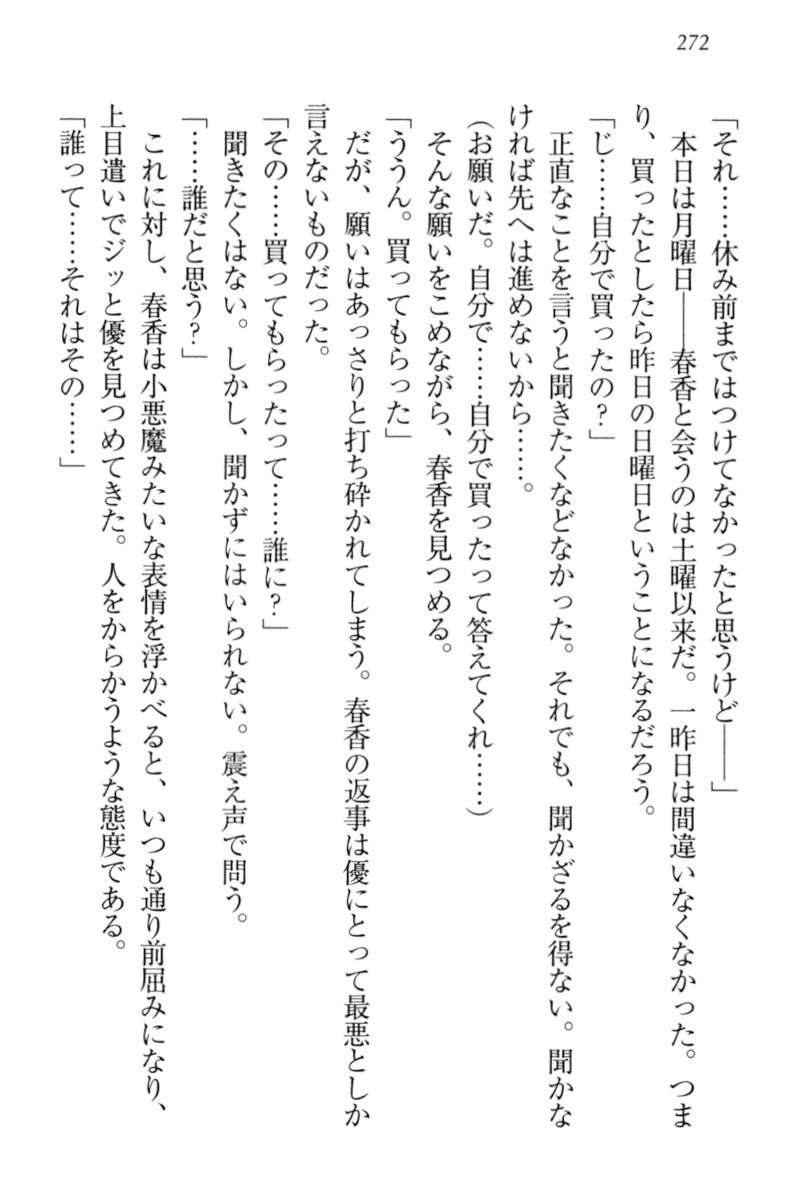 272
「それ……休み前まではつけてなかったと思うけど――」
　本日は月曜日――春香と会うのは土曜以来だ。一昨日は間違いなくなかった。つま
り、買ったとしたら昨日の日曜日ということになるだろう。
「じ……自分で買ったの？」
　正直なことを言うと聞きたくなどなかった。それでも、聞かざるを得ない。聞かな
ければ先へは進めないから……。
（お願いだ。自分で……自分で買ったって答えてくれ……）
　そんな願いをこめながら、春香を見つめる。
「ううん。買ってもらった」
　だが、願いはあっさりと打ち砕かれてしまう。春香の返事は優にとって最悪としか
言えないものだった。
「その……買ってもらったって……誰に？」
　聞きたくはない。しかし、聞かずにはいられない。震え声で問う。
「……誰だと思う？」
　これに対し、春香は小悪魔みたいな表情を浮かべると、いつも通り前屈みになり、
上目遣いでジッと優を見つめてきた。人をからかうような態度である。
「誰って……それはその……」